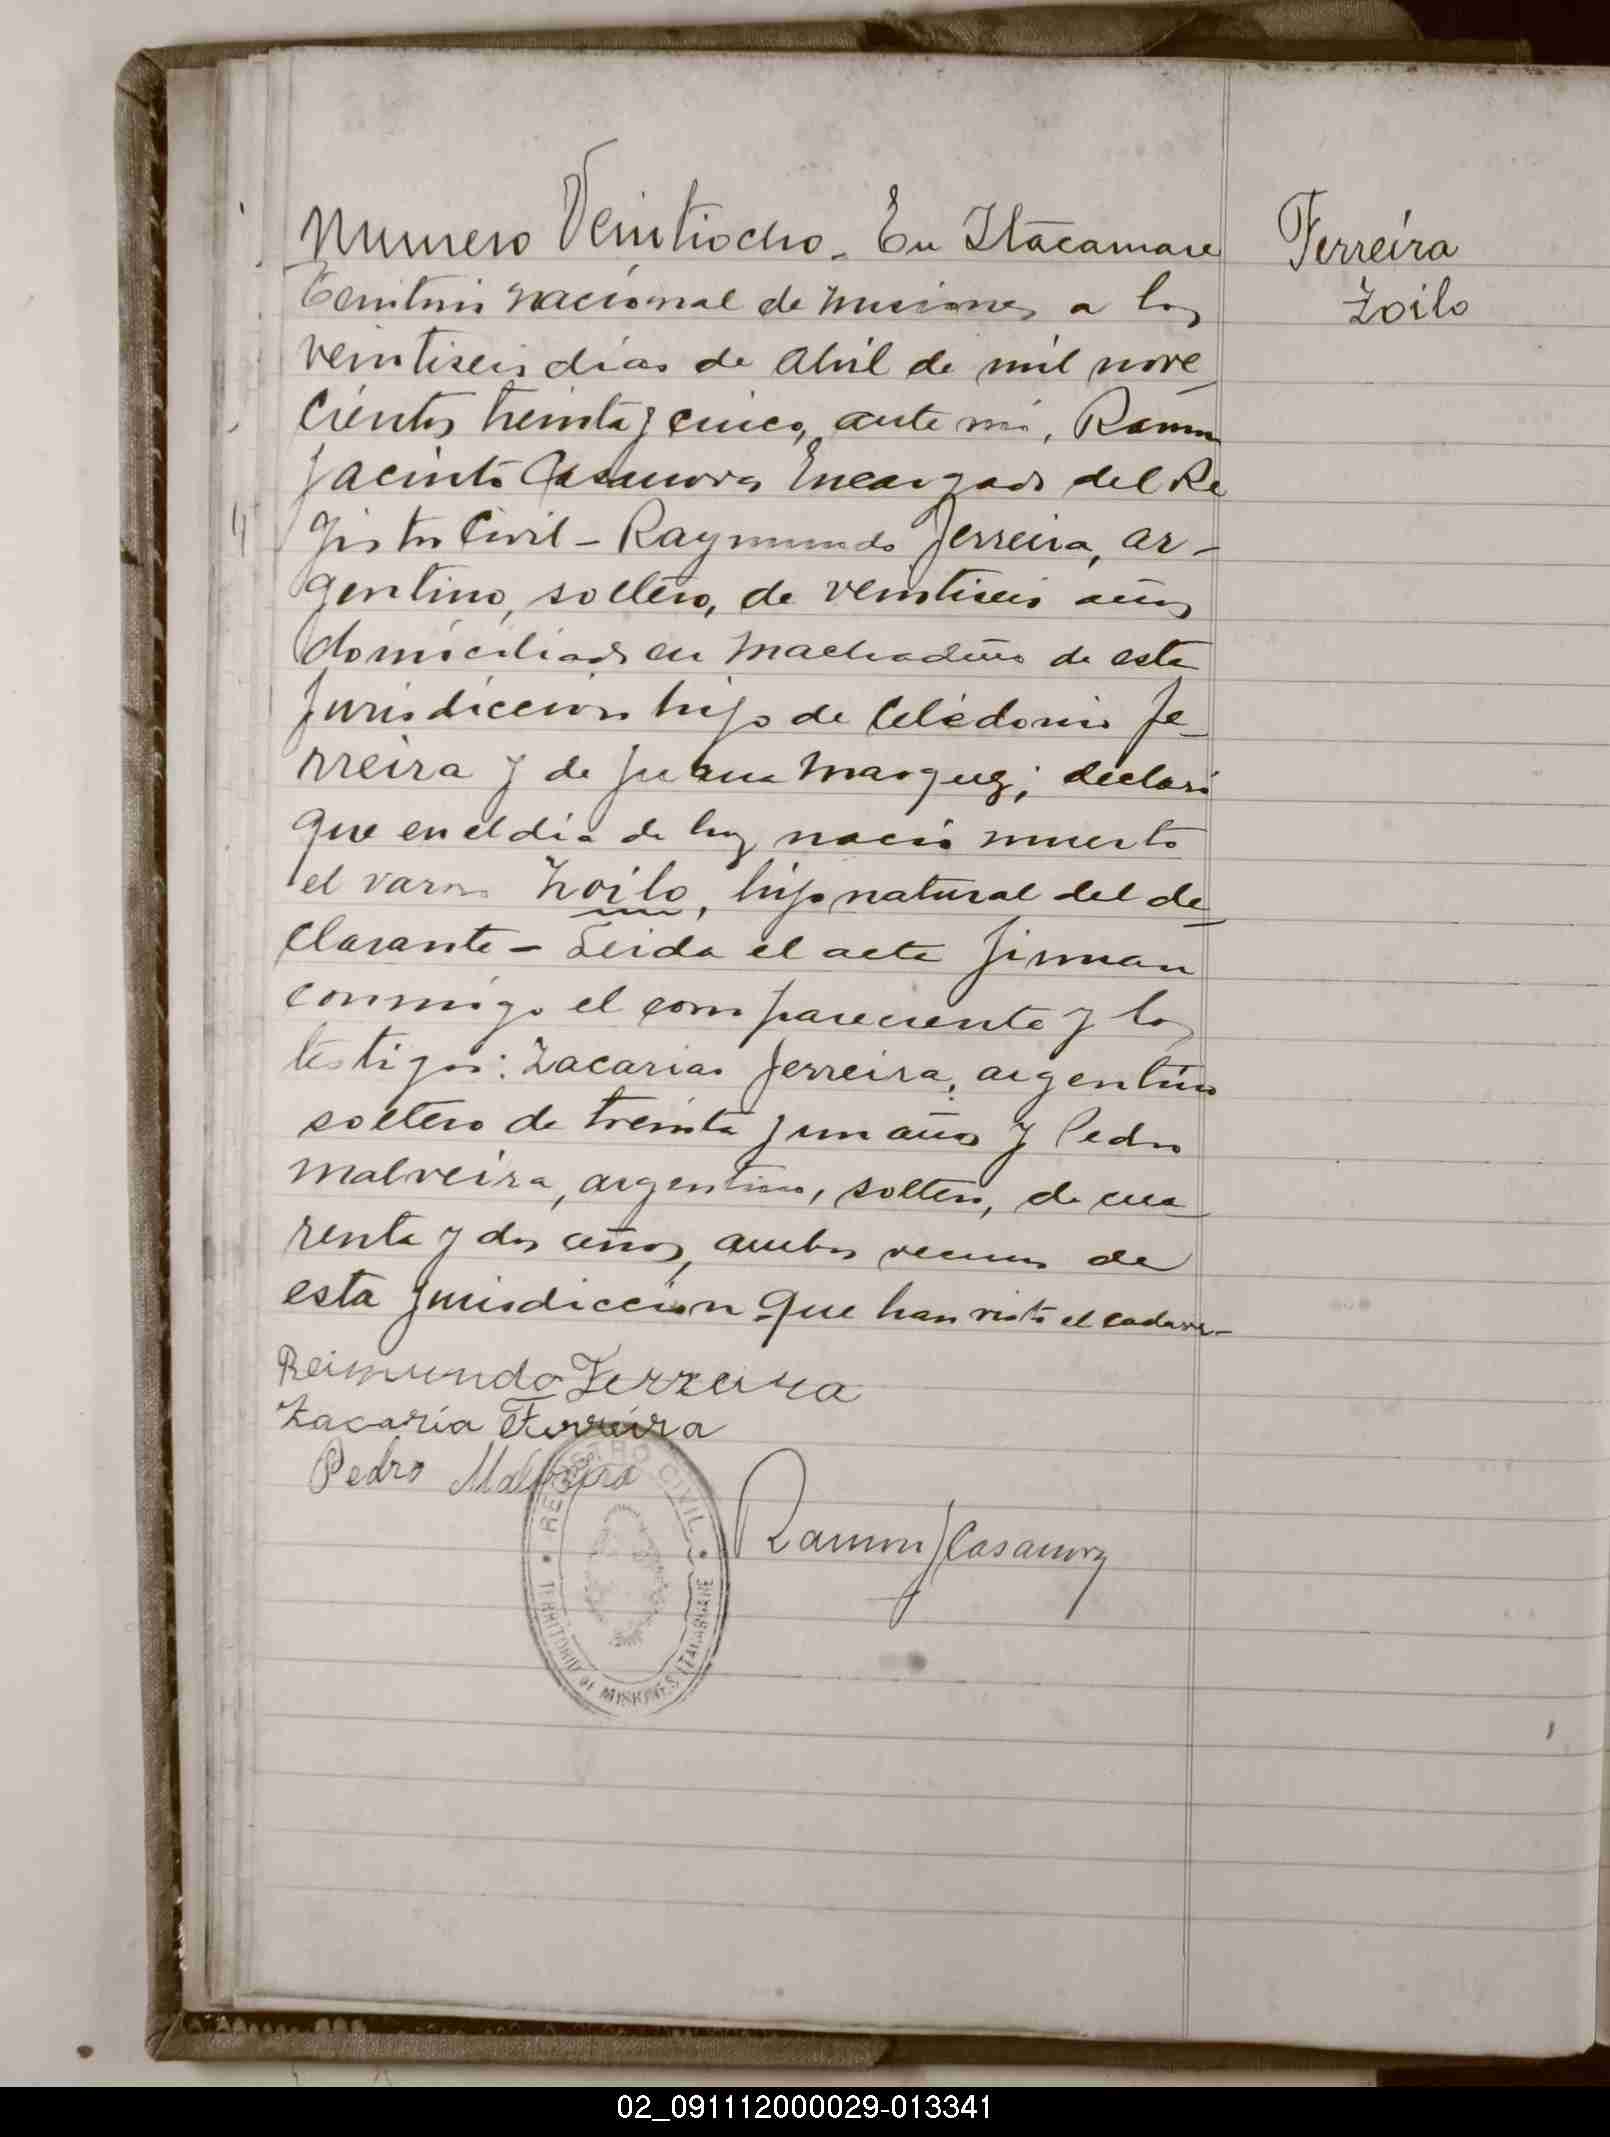 Numero Veintiocho. En Itacaruare
Territorio nacional de Misiones a los
veintiseis dias de Abril de mil nove
cientos treinta y cinco, ante mi, Ramon
Jacinto Casanova Encargado del Re
gistro Civil - Raymundo Ferreira, ar-
gentino, soltero, de veintiseis años
domiciliado en Machadiño de esta
jurisdiccion hijo de Celedonio Fe-
rreira y de Juana Marquez; declaró
que en el dia de hoy nació muerto
el varon Zoilo, hijo natural del de-
clarante - Leida el acta firman
conmigo el compareciente y los
testigos: Zacarias Ferreira, argentino
soltero de treinta y un años y Pedro
Malveira, argentino, soltero, de cua-
renta y dos años, ambos vecinos de
esta jurisdiccion que han visto el cadaver-
Reimundo Ferreira
Zacaria Ferreira
Pedro Malveira
Ramon J Casanova
Ferreira
Zoilo
REGISTRO CIVIL
TERRITORIO DE MISIONES ITACARUARE
02_091112000029-013341